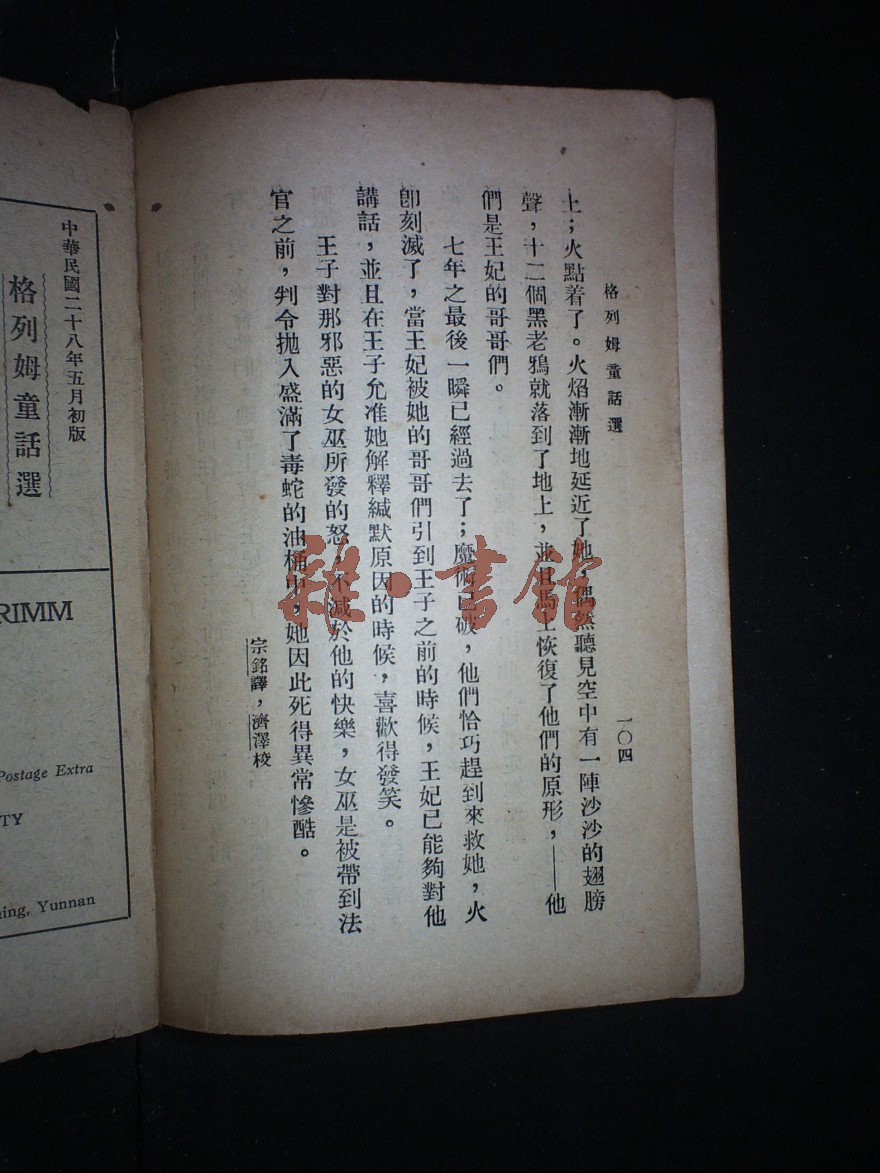 格列姆童話選
一〇四
上；火點着了。火焰漸漸地延近了她，偶然聽見空中有一陣沙沙的翅膀
聲，十二個黑老鴉就落到了地上，並且馬上恢復了他們的原形，——他
們是王妃的哥哥們。
七年之最後一瞬已經過去了；魔術已破，他們恰巧趕到來救她，火
卽刻滅了，當王妃被她的哥哥們引到王子之前的時候，王妃已能夠對他
講話，並且在王子允准她解釋緘默原因的時候，喜歡得發笑。
王子對那邪惡的女巫所發的怒，不減於他的快樂，女巫是被帶到法
官之前，判令拋入盛滿了毒蛇的油桶中，她因此死得異常慘酷。
宗銘譯，濟澤校
雜·書館
中華民國二十八年五月初版
格列姆童話選
RIMM
Postage Extra
TY
ing, Yunnan